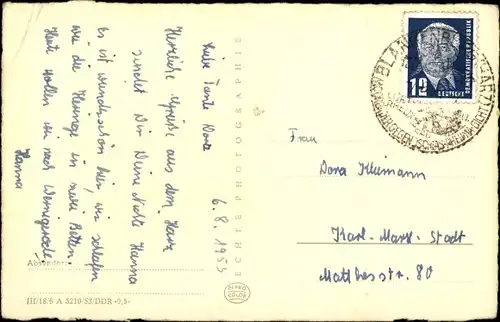 6.8.1953
Liebe Tante Dora
Herzliche Grüße aus dem Harz
sendet Dir Deine Nichte Hanna
Es ist wunderschön hier, wir schlafen
wie die Heringe in zwei Betten.
Heut wollen wir nach Wernigerode
Hanna
Absender:
III/18/6 A 5210/53/DDR -0,5-
ECHTE PHOTOGRAPHIE
COLOR
12
DEUTSCHE
DEMOKRATISCHE REPUBLIK
BLANKENBURG (HARZ)
Frau
Dora Kleimann
Karl-Marx-Stadt
Matthesstr. 80